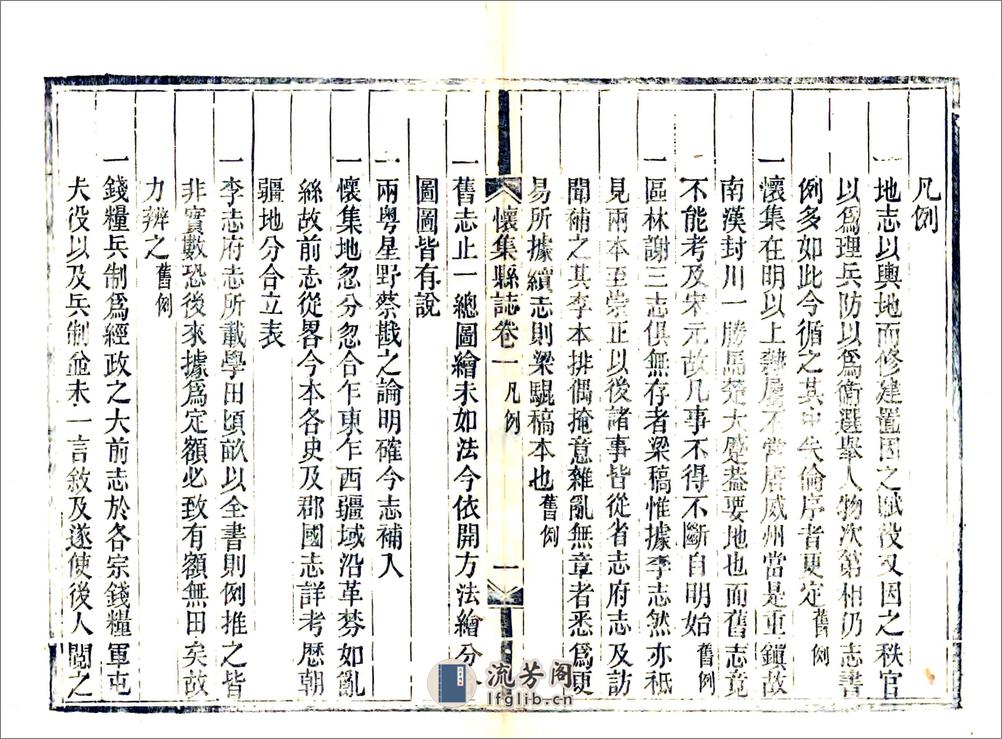 凡例
一地志以輿地而修建置因之賦役又因之秩官
以爲理兵防以爲衛選舉人物次第相仍志書
例多如此今循之其中失倫序者更定舊例
一懷集在明以上隸屬不常唐威州當是重鎮故
南漢封川一勝馬楚大蹙葢要地也而舊志竟
不能考及宋元故凡事不得不斷自明始舊例
一區林謝三志俱無存者梁稿惟據李志然亦祇
見兩本至崇正以後諸事皆從省志府志及訪
聞補之其李本排偶掩意雜亂無章者悉爲更
易所據續志則梁騉稿本也舊例
懷集縣誌卷一 凡例 一
一舊志止一總圖繪未如法今依開方法繪分
圖圖皆有說
一兩粤星野蔡戡之論明確今志補入
一懷集地忽分忽合乍東乍西疆域沿革棼如亂
絲故前志從畧今本各史及郡國志詳考歷朝
疆地分合立表
一李志府志所載學田頃畝以全書則例推之皆
非實數恐後來據爲定額必致有額無田矣故
力辨之舊例
一錢糧兵制爲經政之大前志於各宗錢糧軍屯
夫役以及兵制並未一言敘及遂使後人閱之
流芳阁
lfglib.cn